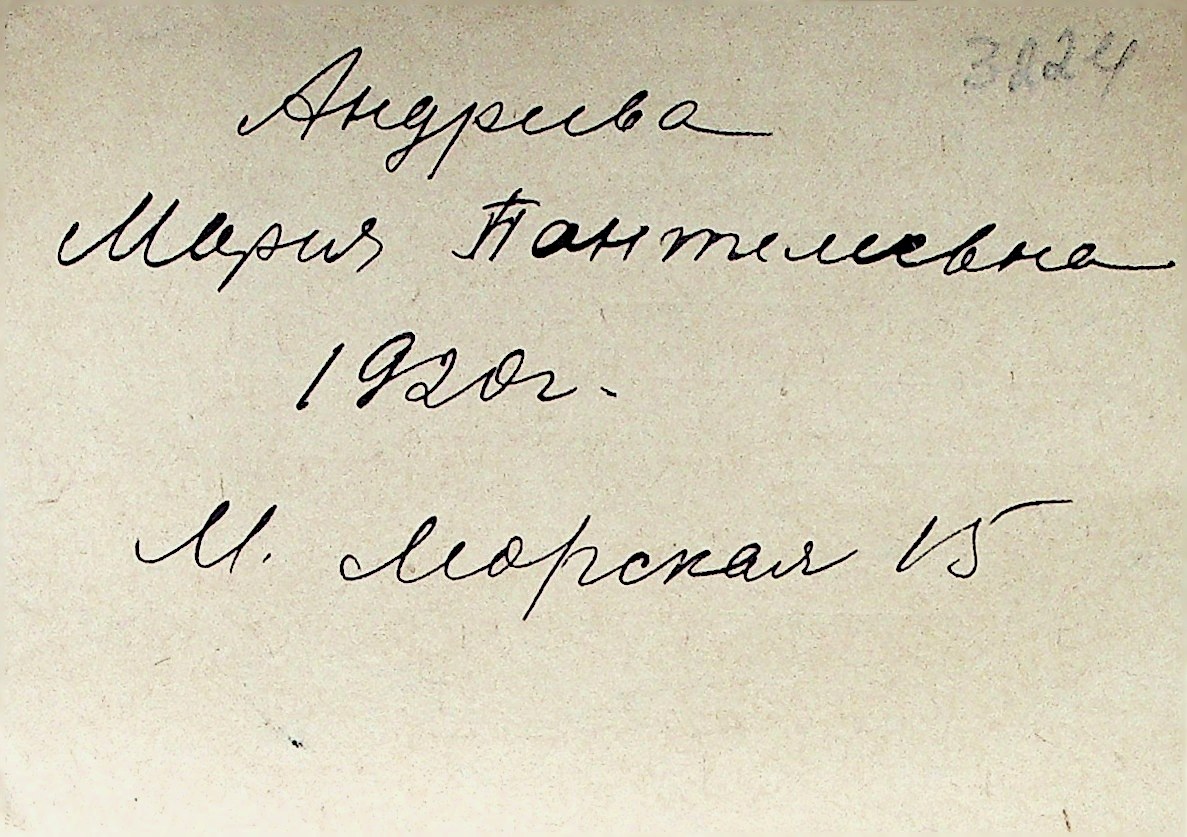 3224
Андреева
Мария Пантелеевна
1920г.
М. Морская 15